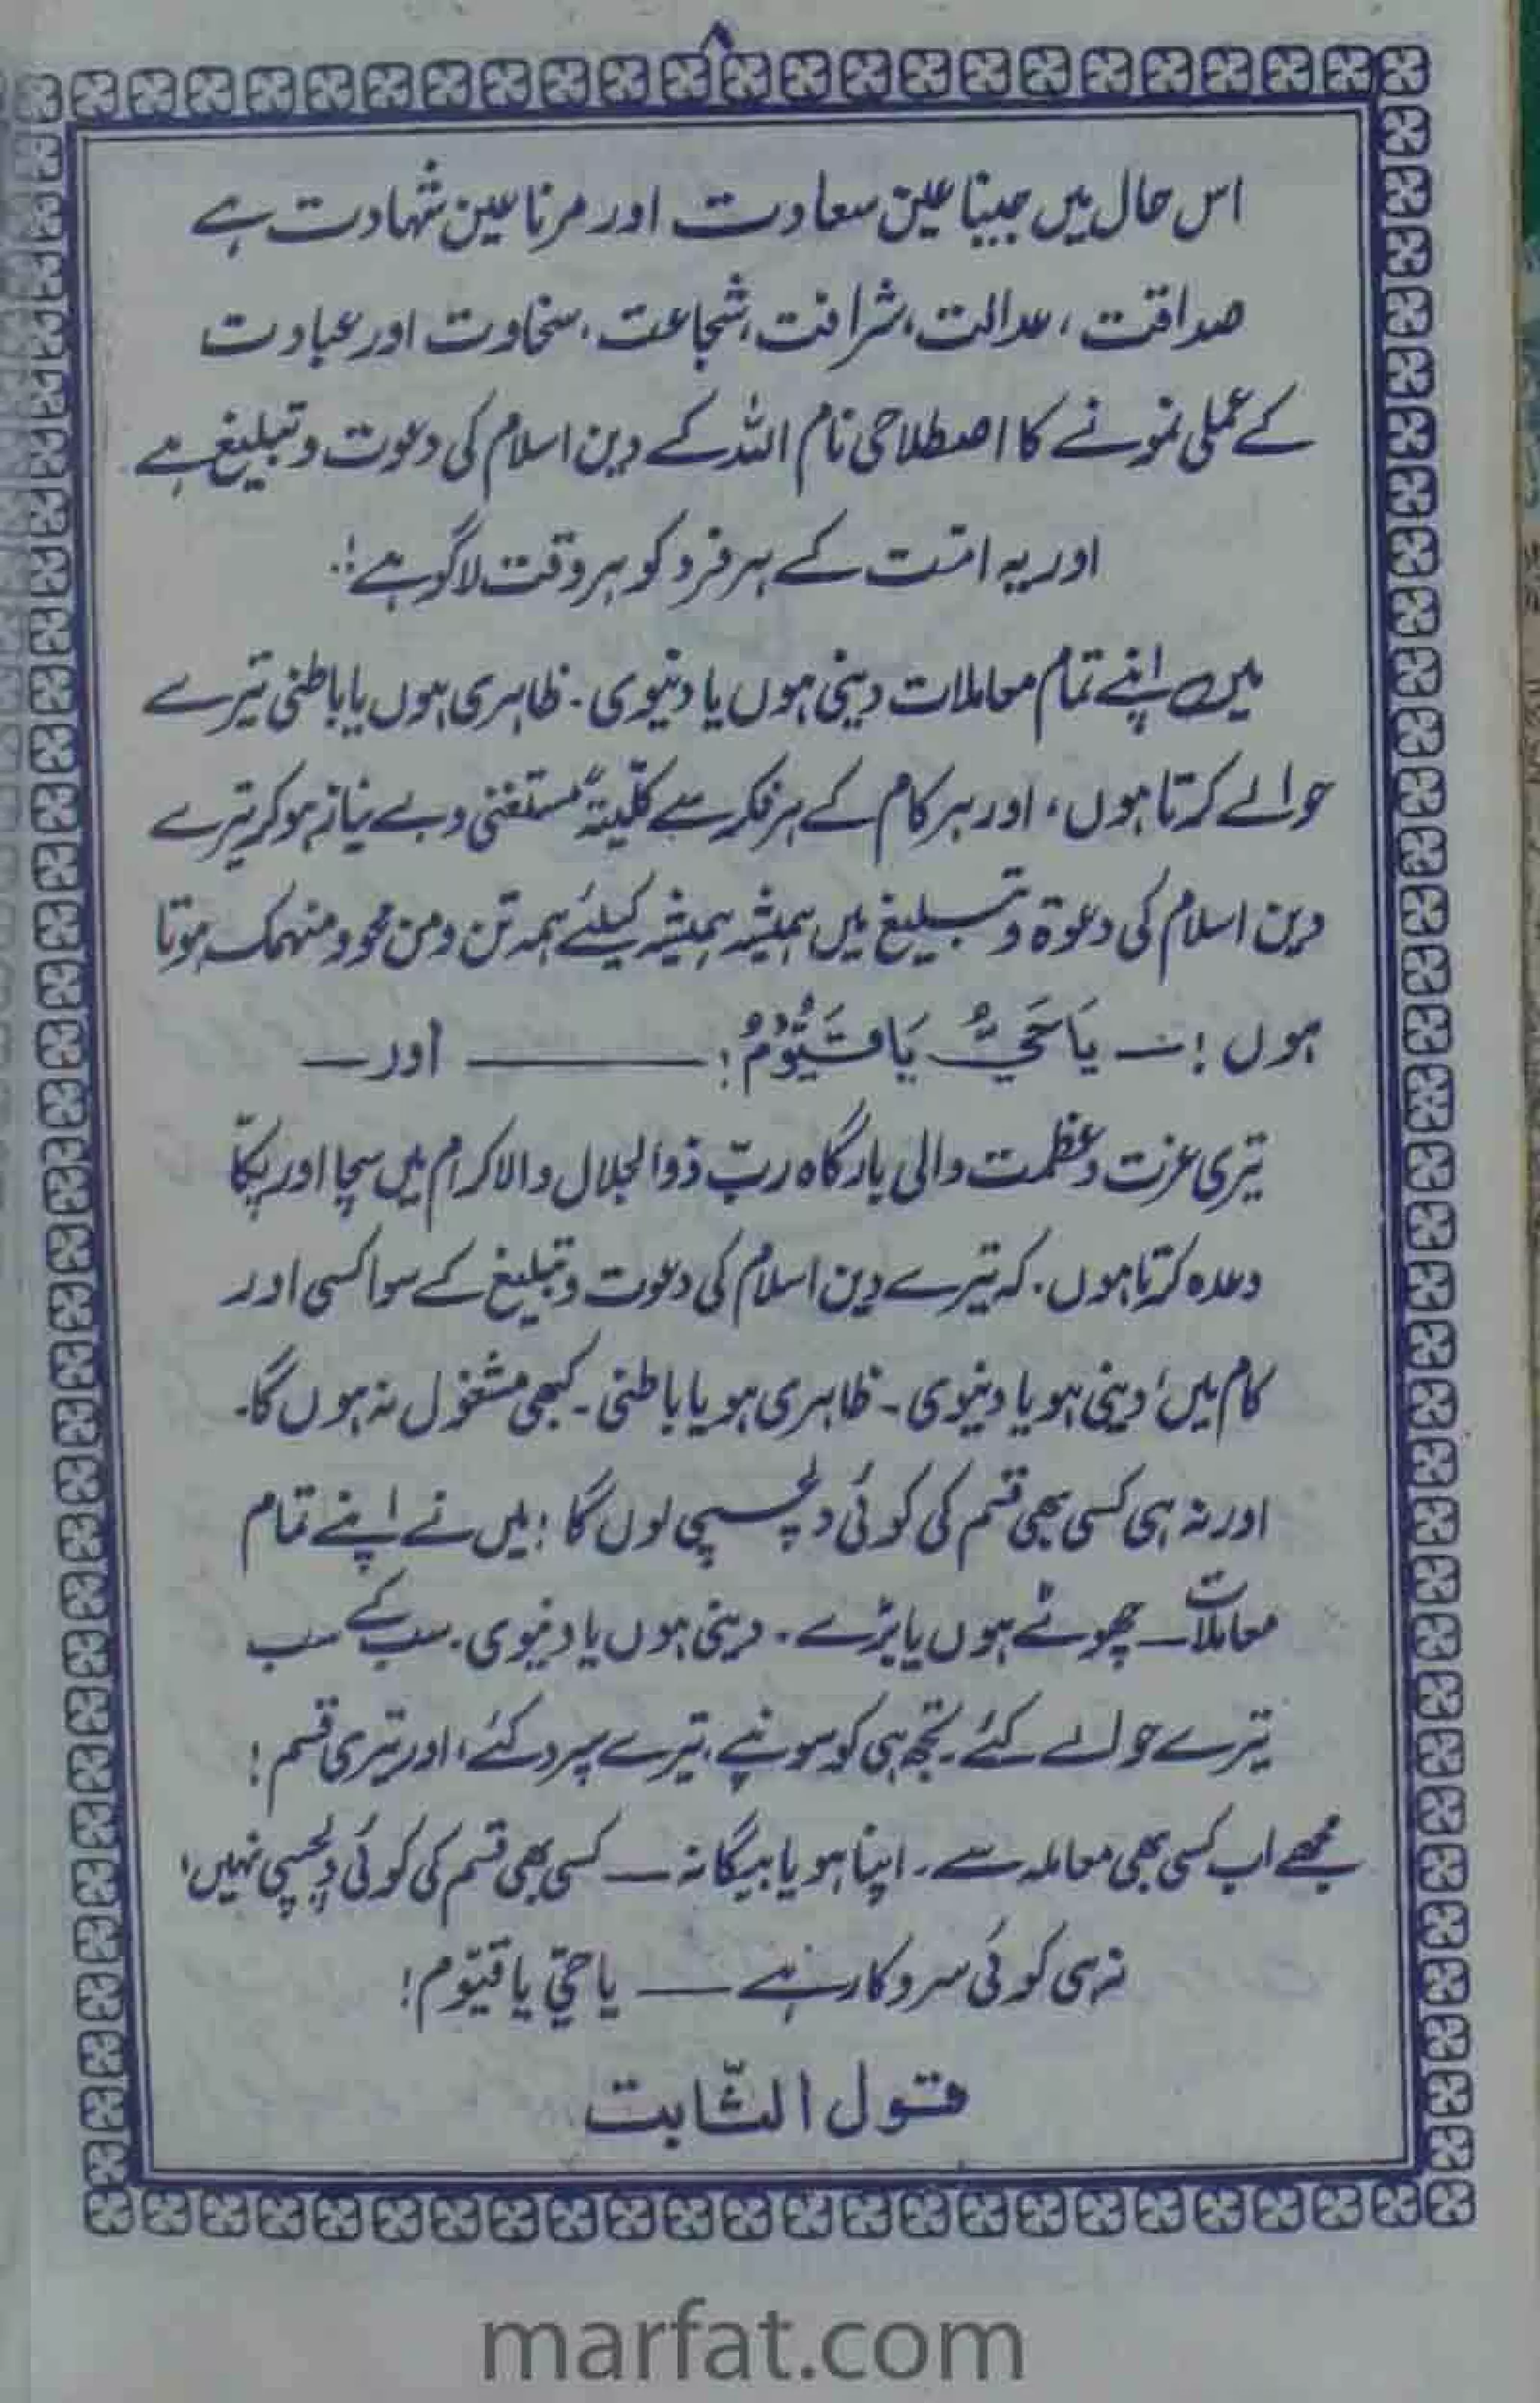 ۸
اس حال میں جینا عین سعادت اور مرنا عین شہادت ہے
صداقت، عدالت، شرافت، شجاعت، سخاوت اور عبادت
کے عملی نمونے کا اصطلاحی نام اللہ کے دین اسلام کی دعوت و تبلیغ ہے
اور یہ امّت کے ہر فرد کو ہر وقت لاگو ہے:.
میں اپنے تمام معاملات دینی ہوں یا دنیوی۔ ظاہری ہوں یا باطنی تیرے
حوالے کرتا ہوں، اور ہر کام کے ہر فکر سے کلّیتہً مستغنی و بے نیاز ہو کر تیرے
دین اسلام کی دعوۃ و تبلیغ میں ہمیشہ ہمیشہ کیلئے ہمہ تن و من محو و منہمک ہوتا
ہوں !۔ یَا حَیُّ یَا قَیُّوْمُ ! ــــــــ اور ــ
تیری عزت و عظمت والی بارگاہ ربّ ذوالجلال والاکرام میں سچا اور پکّا
وعدہ کرتا ہوں۔ کہ تیرے دین اسلام کی دعوت و تبلیغ کے سوا کسی اور
کام میں؛ دینی ہو یا دنیوی ۔ ظاہری ہو یا باطنی ۔ کبھی مشغول نہ ہوں گا۔
اور نہ ہی کسی بھی قسم کی کوئی دلچسپی لوں گا ! میں نے اپنے تمام
معاملات ـ چھوٹے ہوں یا بڑے ۔ دینی ہوں یا دنیوی۔ سب کے سب
تیرے حوالے کئے۔ تجھ ہی کو سونپے، تیرے سپرد کئے، اور تیری قسم !
مجھے اب کسی بھی معاملہ سے ۔ اپنا ہو یا بیگانہ ــ کسی بھی قسم کی کوئی دلچسپی نہیں،
نہ ہی کوئی سروکار ہے ــــ یا حیّ یا قیّوم !
قول الثّابت
marfat.com